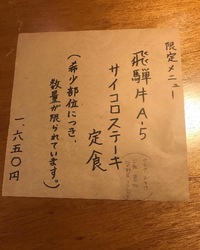 限定メニュー
飛騨牛A-5
サイコロステーキ
定食
(希少部位につき、
数量が限られています。)
一、六五〇円